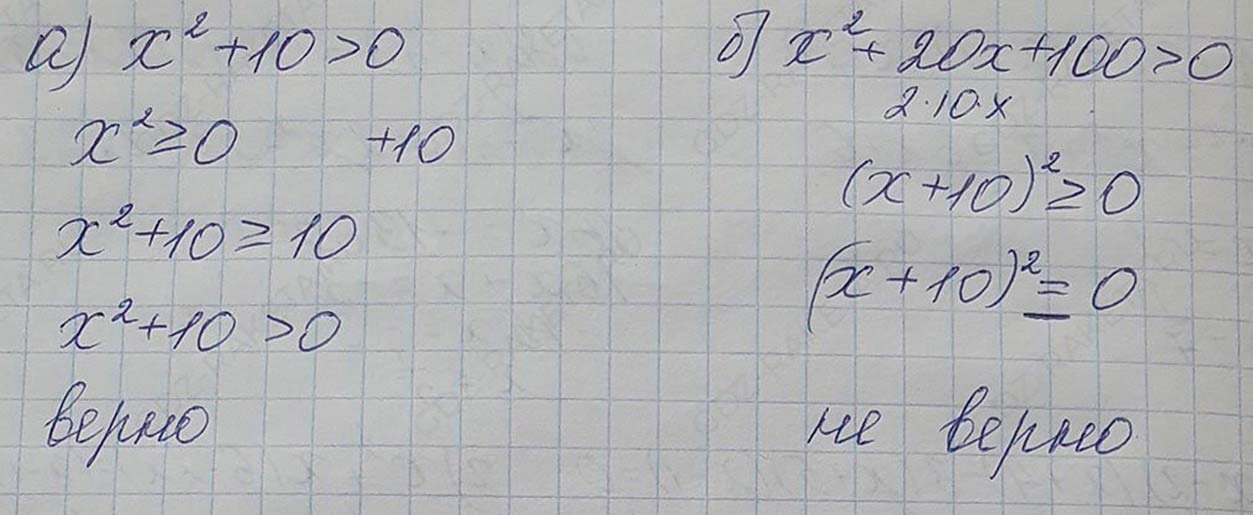 а) x² + 10 > 0
x² ≥ 0 +10
x² + 10 ≥ 10
x² + 10 > 0
верно
б) x² + 20x + 100 > 0
2·10·x
(x + 10)² ≥ 0
(x + 10)² = 0
не верно